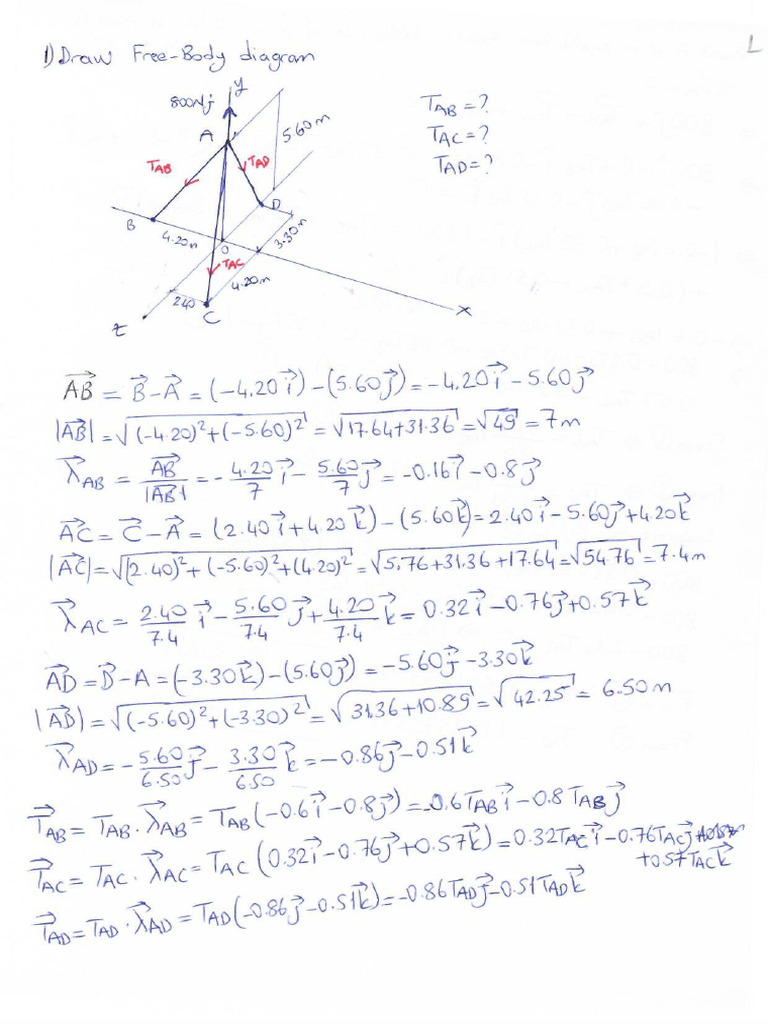 L
1) Draw Free-Body diagram
y
800N j
A
5.60m
TAB
TAD
B
D
4.20m
O
3.30m
TAC
4.20m
240
C
z
x
TAB = ?
TAC = ?
TAD = ?
AB = B - A = (-4.20 i) - (5.60 j) = -4.20 i - 5.60 j
|AB| = √(-4.20)² + (-5.60)² = √17.64+31.36 = √49 = 7m
λAB = AB/|AB| = -4.20/7 i - 5.60/7 j = -0.16 i - 0.8 j
AC = C - A = (2.40 i + 4.20 k) - (5.60 k) = 2.40 i - 5.60 j + 4.20 k
|AC| = √(2.40)² + (-5.60)² + (4.20)² = √5.76+31.36+17.64 = √54.76 = 7.4m
λAC = 2.40/7.4 i - 5.60/7.4 j + 4.20/7.4 k = 0.32 i - 0.76 j + 0.57 k
AD = B - A = (-3.30 k) - (5.60 j) = -5.60 j - 3.30 k
|AD| = √(-5.60)² + (-3.30)² = √31.36+10.89 = √42.25 = 6.50 m
λAD = -5.60/6.50 j - 3.30/6.50 k = -0.86 j - 0.51 k
TAB = TAB . λAB = TAB (-0.6 i - 0.8 j) = -0.6 TAB i - 0.8 TAB j
TAC = TAC . λAC = TAC (0.32 i - 0.76 j + 0.57 k) = 0.32 TAC i - 0.76 TAC j
+0.57 TAC k
TAD = TAD . λAD = TAD (-0.86 j - 0.51 k) = -0.86 TAD j - 0.51 TAD k